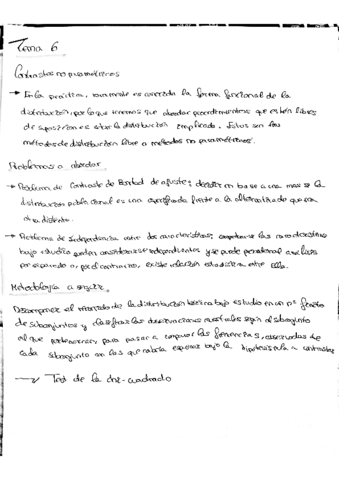 Tema 6
Contrastes no paramétricos
→ En la práctica, raramente es conocida la forma funcional de la
distribución, por lo que tenemos que abordar procedimientos que estén libres
de suposiciones sobre la distribución empleada. Estos son los
métodos de distribución libre o métodos no paramétricos.
Problemas a abordar
→ Problema de Contraste de Bondad de ajuste: decidir en base a una mas si la
distribución poblacional es una especificada frente a la alternativa de que sea
otra distinta.
→ Problema de Independencia entre dos características: comprobar si las características
bajo estudio pueden considerarse independientes y se puede
por separado o por el contrario, existe relación estadística entre ellas.
Metodología a seguir.
Descomponer el recorrido de la distribución teórica bajo estudio en un nº finito
de subconjuntos y clasificar las observaciones muestrales según el subconjunto
al que pertenezcan, para pasar a comparar las frecuencias observadas de
cada subconjunto con las que cabría esperar bajo la hipótesis nula a contrastar
→ Test de la chi-cuadrado